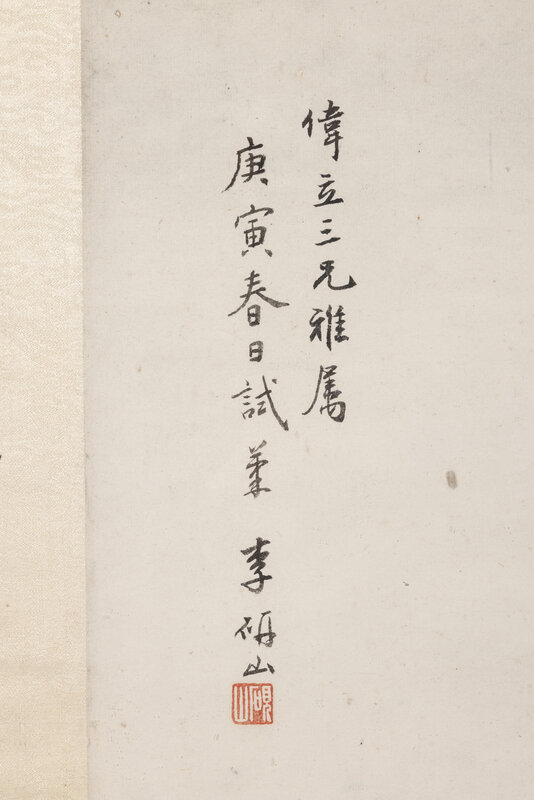 偉立三兄雅属
庚寅春日試筆 李研山
研山